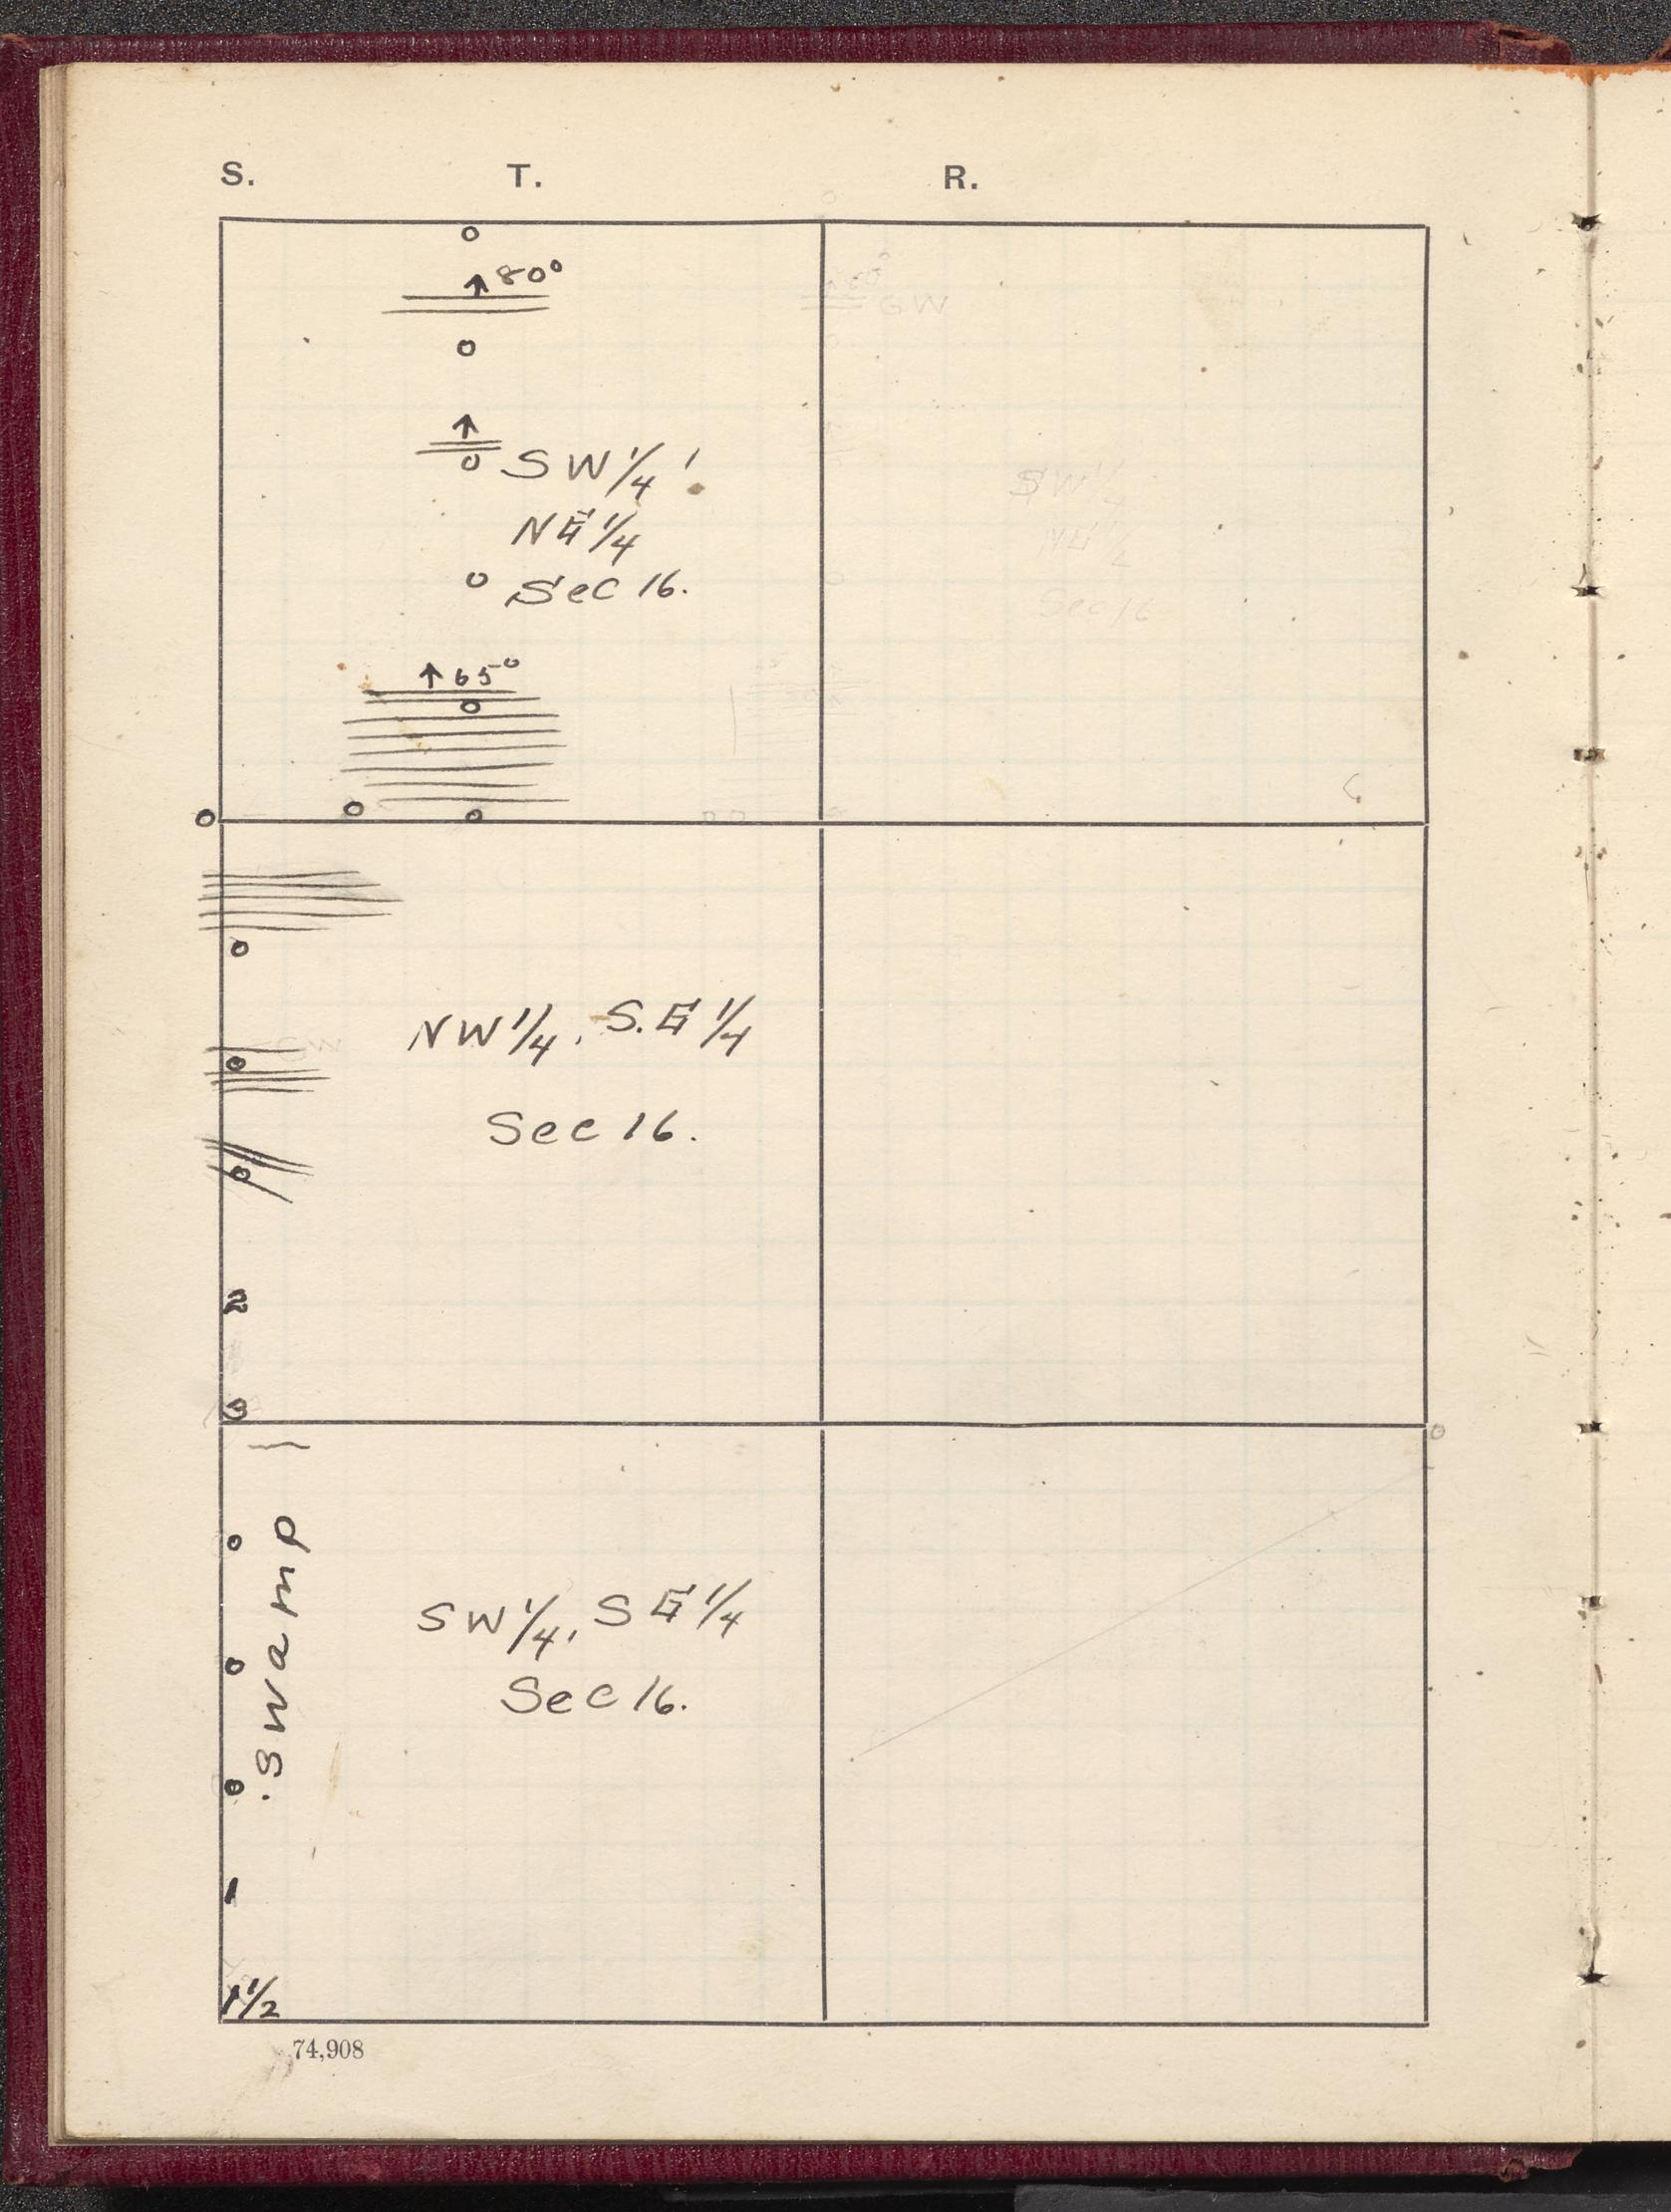 S. T. R.
o
↑ 80°
o
↑
o SW 1/4
NE 1/4
o Sec 16.
↑ 65°
o
o o o
o
NW 1/4, S.E 1/4
o
Sec 16.
o
2
3
Swamp
o
SW 1/4, SE 1/4
o
Sec 16.
o
1
1 1/2
74,908